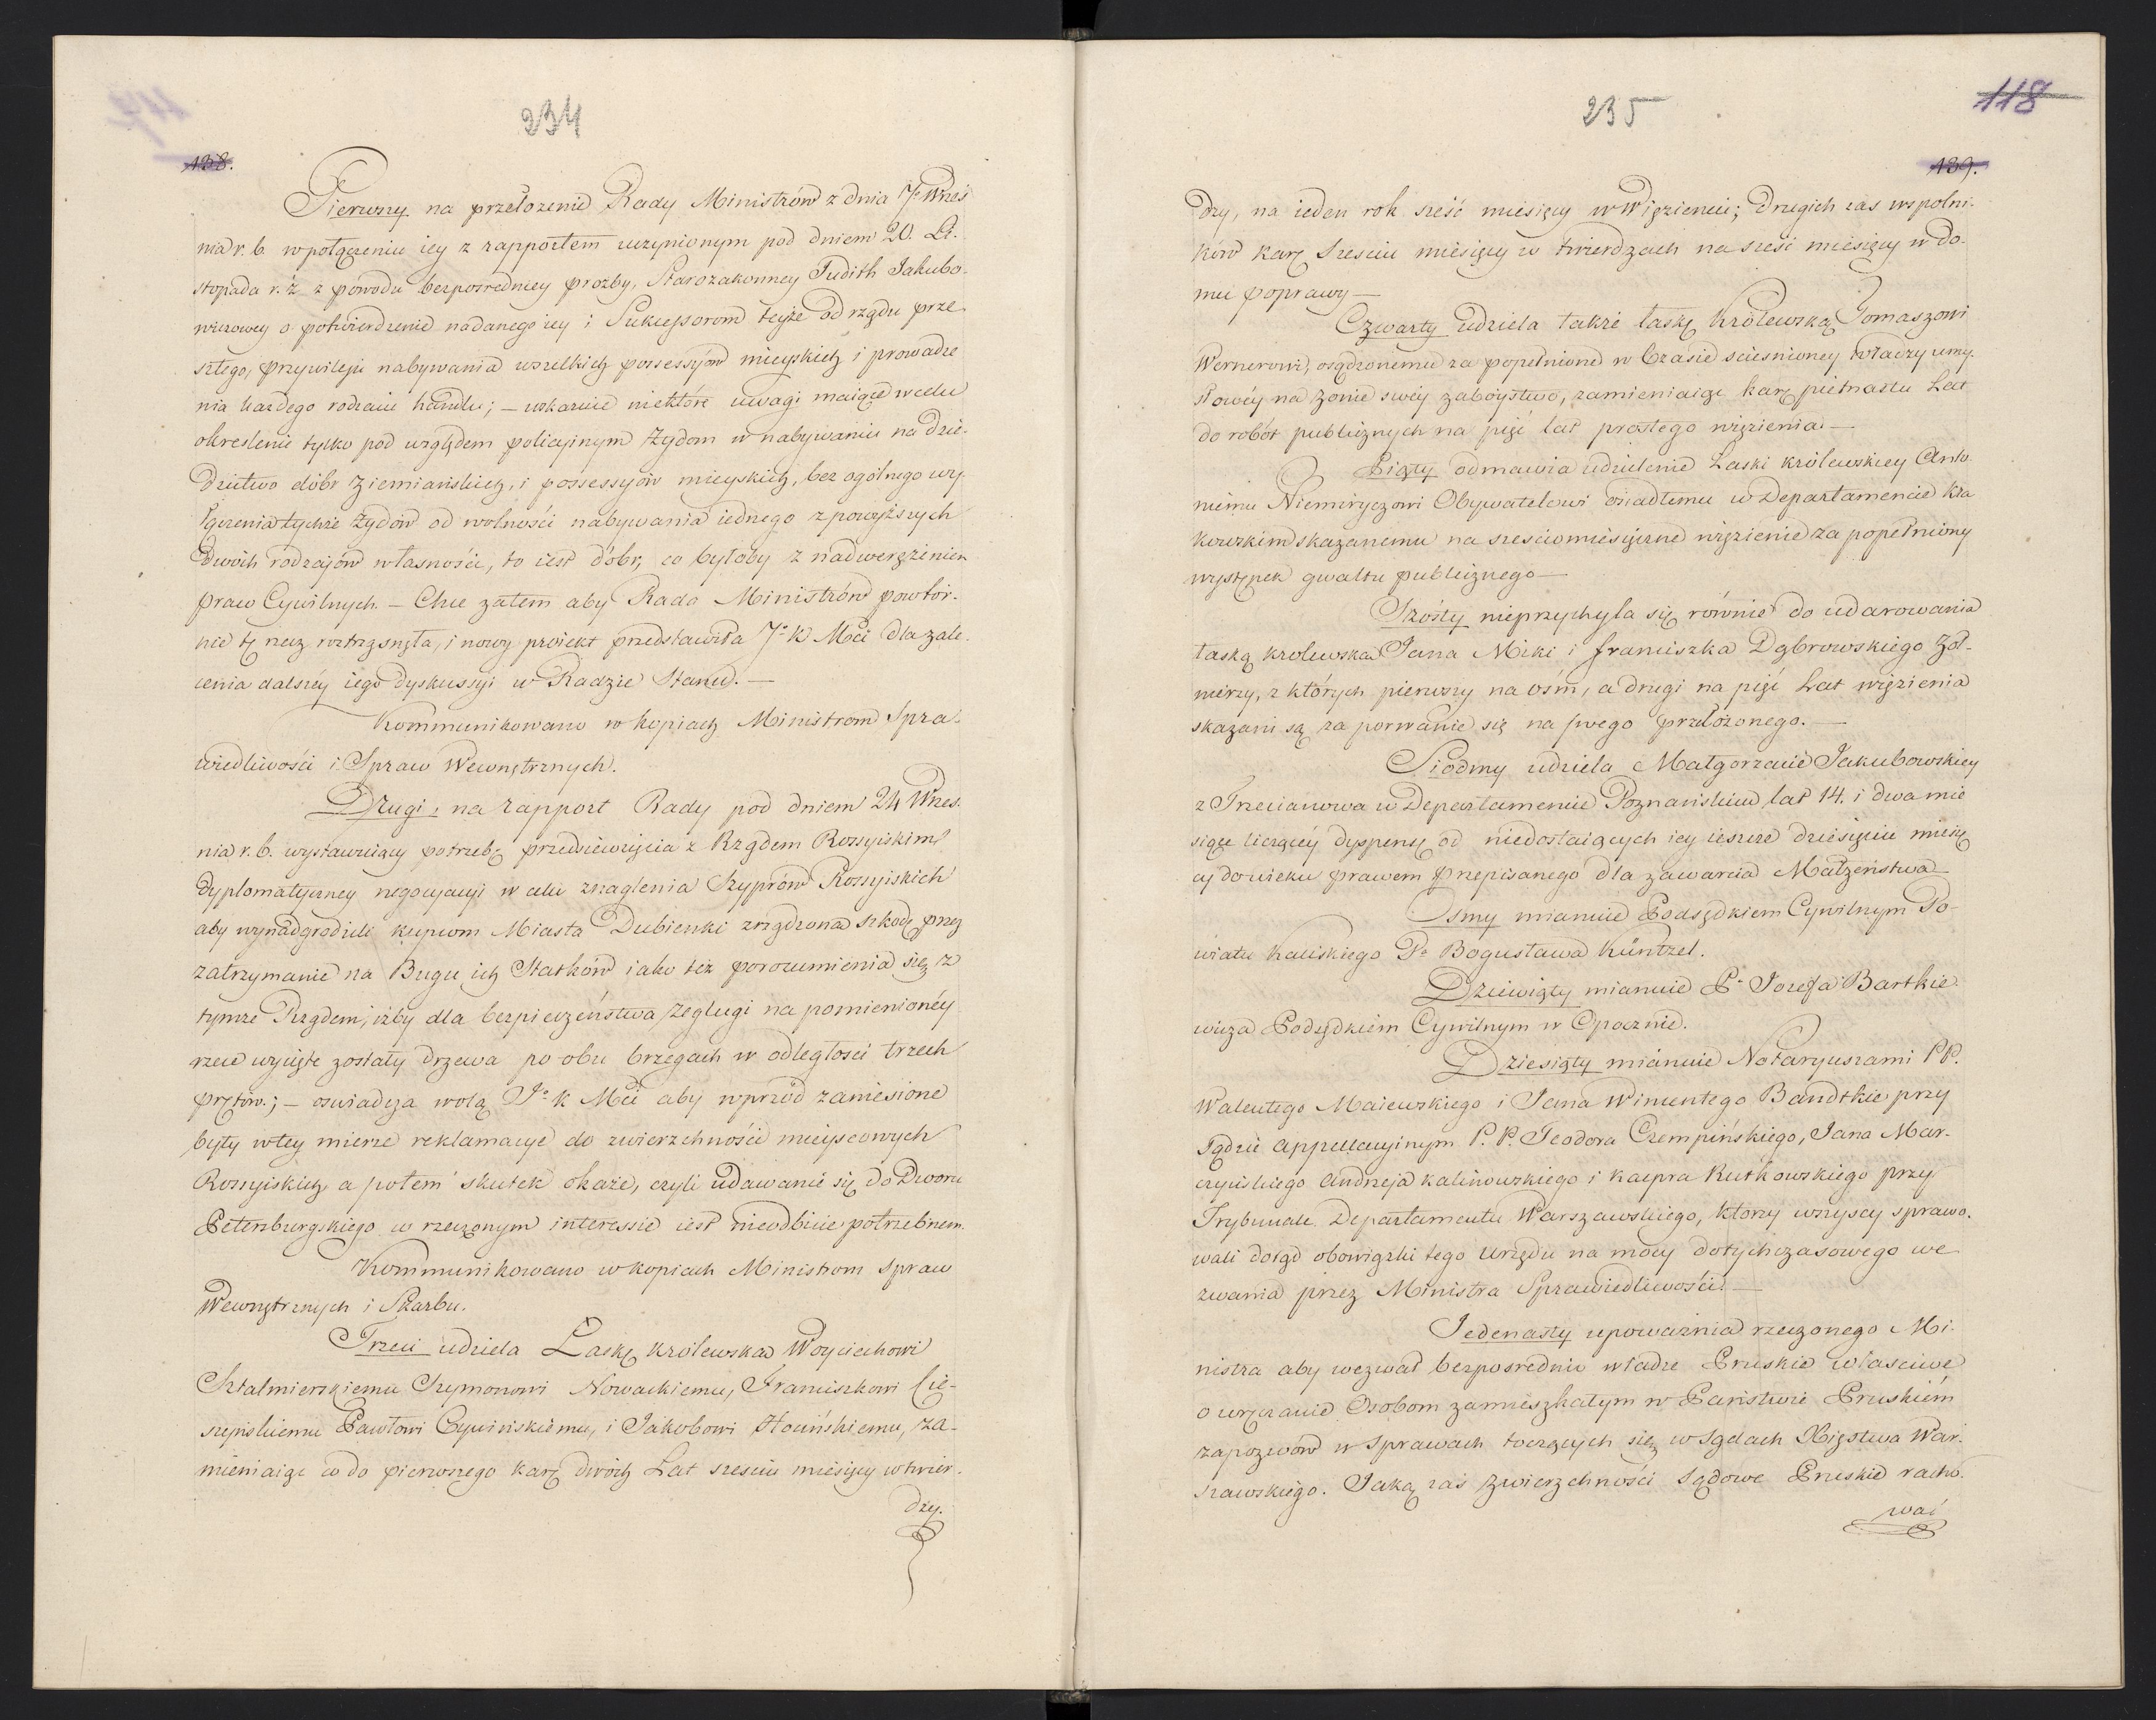 234
138.
Pierwszy na przełożenie Rady Ministrów z dnia 7o Wrześ
nia r. b. w połączeniu iey z rapportem uczynionym pod dniem 20. Li-
stopada r. z. z powodu bezpośredniey prozby, Starozakonney Judith Jakubo-
wiczowey o potwierdzenie nadanego iey i Sukcessorom teyże od rządu prze
szłego, przywileju nabywania wszelkich possessyów mieyskich i prowadze
nia każdego rodzaiu handlu; – wskazuie niektóre uwagi maiące w celu
okreslenie tylko pod względem policyinym Żydom w nabywaniu na dzie-
dzictwo dóbr Ziemiańskich, i possessyów mieyskich, bez ogolnego wy-
łączenia tychże Żydów od wolności nabywania iednego z powyższych
dwóch rodzajów własności, to iest dóbr, co byłoby z nadwerężeniem
praw Cywilnych. – Chce zatem aby Rada Ministrów powtór-
nie tę rzecz roztrząsnęła, i nowy proiekt przedstawiła Jo K Mci dla zale-
cenia dalszey iego dyskussyi w Radzie Stanu. —
Kommunikowano w kopiach Ministrom Spra-
wiedliwości i Spraw Wewnętrznych.
Drugi, na rapport Rady pod dniem 24 Wrześ-
nia r. b. wystawuiący potrzebę przedsięwzięcia z Rządem Rossyiskim
dyplomatyczney negocyacyi w celu znaglenia Szyprów Rossyiskich
aby wynadgrodzili kupcom Miasta Dubienki zrządzoną szkodę przez
zatrzymanie na Bugu ich Statków iako też porozumienia się z
tymże Rządem, iżby dla bezpieczeństwa żeglugi na pomienioney
rzece wycięte zostały drzewa po obu brzegach w odległości trzech
prętów.; – oswiadcza wolą Jo K Mci aby wprzód zaniesione
były w tey mierze reklamacye do zwierzchności mieyscowych
Rossyiskich a potem skutek okaże, czyli udawanie się do Dworu
Petersburgskiego w rzeczonym interessie iest nieodbicie potrzebnem.
Kommunikowano w kopiach Ministrom Spraw
Wewnętrznych i Skarbu.
Trzeci udziela Łaskę Królewską Woyciechowi
Sztalmierskiemu Szymonowi Nowackiemu, Franciszkowi Cie-
szyńskiemu Pawłowi Cywińskiemu, i Jakobowi Hocińskiemu, za-
mieniaiąc co do pierwszego karę dwóch Lat sześciu miesięcy w twier-
dzy.
235
118
139.
dzy, na ieden rok sześć miesięcy w Więzieniu; drugich zaś wspólni-
ków karę Sześciu miesięcy w twierdzach na sześć miesięcy w do-
mu poprawy —
Czwarty udziela także łaskę Królewską Tomaszowi
Wernerowi, osądzonemu za popełnione w Czasie sciesnioney władzy umy-
słowéy na żonie swéy zaboystwo, zamieniaiąc karę piętnastu Lat
do robót publicznych na pięć lat prostego więzienia —
Piąty odmawia udzielenie Łaski królewskiey Anto-
niemu Niemiryczowi Obywatelowi osiadłemu w Departamencie Kra
kowskim skazanemu na sześciomiesięczne więzienie za popełniony
występek gwałtu publicznego —
Szósty nieprzychyla się równie do udarowania
łaską królewską Jana Miki i franciszka Dąbrowskiego Żoł-
nierzy, z których pierwszy na ośm, a drugi na pięć Lat więzienia
skazani są za porwanie się na swego przełożonego. —
Siódmy udziela Małgorzacie Jakubowskiey
z Trzcianowa w Departamencie Poznańskim lat 14. i dwa mie
siące liczącéy dyspensę od niedostaiących iey ieszcze dziesięciu miesię
cy do wieku prawem przepisanego dla zawarcia Małżeństwa
Osmy mianuie Podsędkiem Cywilnym Po-
wiatu Kaliskiego Po Bogusława Küntzel.
Dziewiąty mianuie Po Jozefa Bartkie
wicza Podsędkiem Cywilnym w Opocznie.
Dziesiąty mianuie Notaryuszami PP.
Walentego Maiewskiego i Jana Wincentego Bandtkie przy
Sądzie Appellacyinym P. P. Teodora Czempińskiego, Jana Mar-
czyńskiego Andrzeja Kalinowskiego i Kacpra Rutkowskiego przy
Trybunale Departamentu Warszawskiego, którzy wszyscy sprawo-
wali dotąd obowiązki tego Urzędu na mocy dotychczasowego we
zwania przez Ministra Sprawiedliwości —
Jedenasty upoważnia rzeczonego Mi-
nistra aby wezwał bezpośrednio władze Pruskie właściwe
o wręczanie Osobom zamieszkałym w Państwie Pruskiém
zapozwów w Sprawach toczących się w Sądach Xięstwa War-
szawskiego. Jaką zaś Zwierzchności Sądowe Pruskie racho-
wać